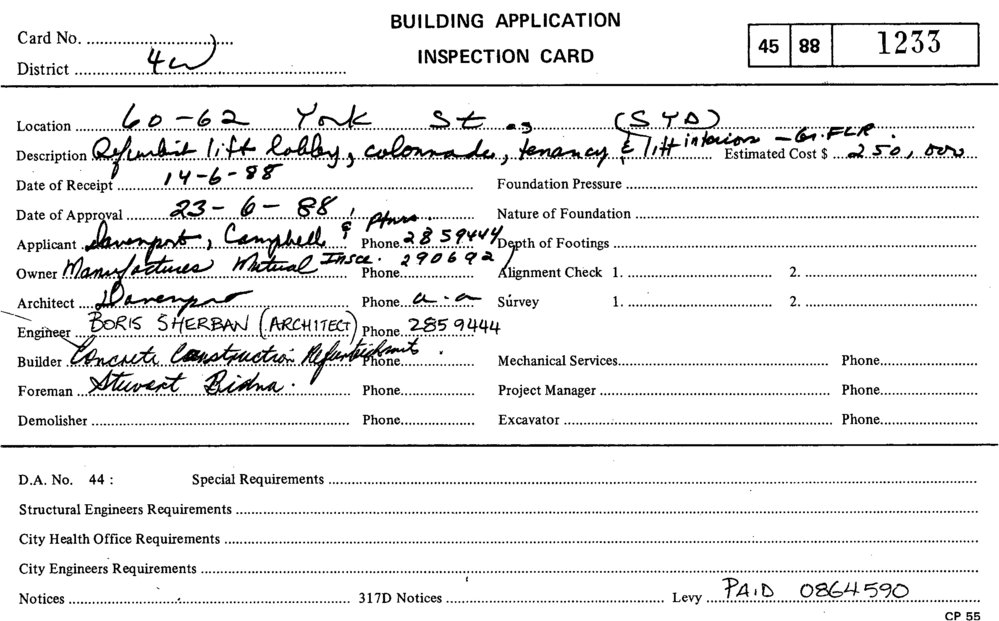 BUILDING APPLICATION
INSPECTION CARD
Card No.
District 4W
45 88 1233
Location 60-62 York St. (SYD)
Description Refurbish lift lobby, colonnade, tenancy & lift interiors - Gr. FLR. Estimated Cost $ 250,000
Date of Receipt 14-6-88 Foundation Pressure
Date of Approval 23-6-88 Nature of Foundation
Applicant Davenport, Campbell & Ptnrs. Phone 2859444 Depth of Footings
Owner Manufactures Mutual Insce. Phone 290692 Alignment Check 1. 2.
Architect Davenport Phone a.a Survey 1. 2.
Engineer BORIS SHERBAN (ARCHITECT) Phone 2859444
Builder Concrete Construction Refurbishments. Phone Mechanical Services Phone
Foreman Stewart Phone Project Manager Phone
Demolisher Phone Excavator Phone
D.A. No. 44 : Special Requirements
Structural Engineers Requirements
City Health Office Requirements
City Engineers Requirements
Notices 317D Notices Levy PAID 0864590
CP 55